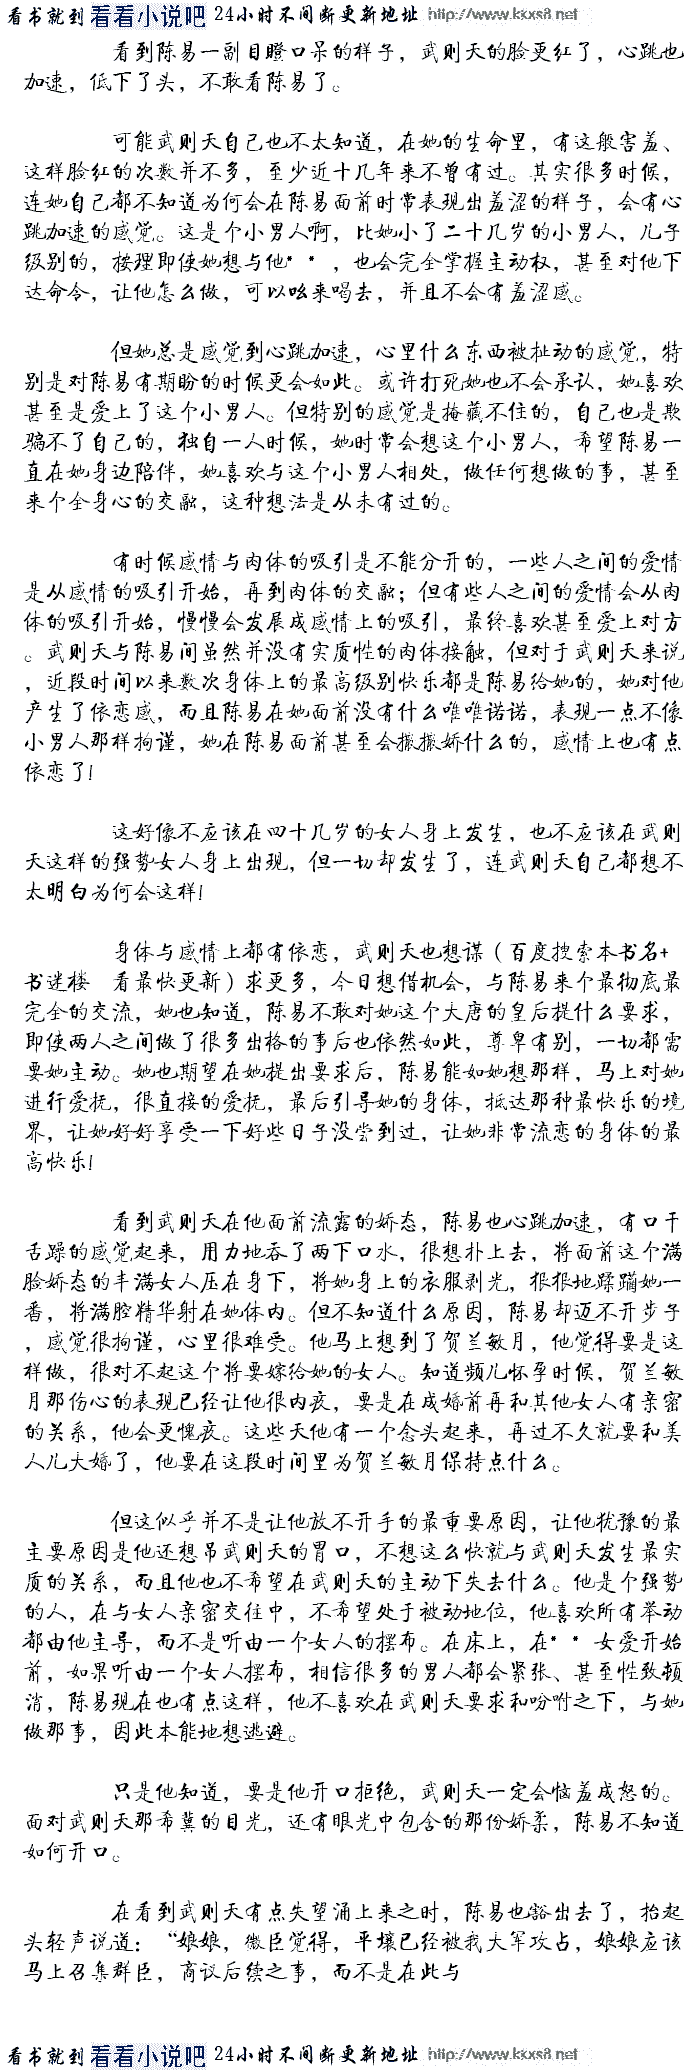 看书就到 看看小说吧 24小时不间断更新地址 http://www.kkxs8.net
看到陈易一副目瞪口呆的样子，武则天的脸更红了，心跳也
加速，低下了头，不敢看陈易了。
可能武则天自己也不太知道，在她的生命里，有这般害羞、
这样脸红的次数并不多，至少近十几年来不曾有过。其实很多时候，
连她自己都不知道为何会在陈易面前时常表现出羞涩的样子，会有心
跳加速的感觉。这是个小男人啊，比她小了二十几岁的小男人，儿子
级别的，按理即使她想与他* * ，也会完全掌握主动权，甚至对他下
达命令，让他怎么做，可以吆来喝去，并且不会有羞涩感。
但她总是感觉到心跳加速，心里什么东西被扯动的感觉，特
别是对陈易有期盼的时候更会如此。或许打死她也不会承认，她喜欢
甚至是爱上了这个小男人。但特别的感觉是掩藏不住的，自己也是欺
骗不了自己的，独自一人时候，她时常会想这个小男人，希望陈易一
直在她身边陪伴，她喜欢与这个小男人相处，做任何想做的事，甚至
来个全身心的交融，这种想法是从未有过的。
有时候感情与肉体的吸引是不能分开的，一些人之间的爱情
是从感情的吸引开始，再到肉体的交融；但有些人之间的爱情会从肉
体的吸引开始，慢慢会发展成感情上的吸引，最终喜欢甚至爱上对方
。武则天与陈易间虽然并没有实质性的肉体接触，但对于武则天来说
，近段时间以来数次身体上的最高级别快乐都是陈易给她的，她对他
产生了依恋感，而且陈易在她面前没有什么唯唯诺诺，表现一点不像
小男人那样拘谨，她在陈易面前甚至会撒撒娇什么的，感情上也有点
依恋了！
这好像不应该在四十几岁的女人身上发生，也不应该在武则
天这样的强势女人身上出现，但一切却发生了，连武则天自己都想不
太明白为何会这样！
身体与感情上都有依恋，武则天也想谋（百度搜索本书名+
书迷楼 看最快更新）求更多，今日想借机会，与陈易来个最彻底最
完全的交流，她也知道，陈易不敢对她这个大唐的皇后提什么要求，
即使两人之间做了很多出格的事后也依然如此，尊卑有别，一切都需
要她主动。她也期望在她提出要求后，陈易能如她想那样，马上对她
进行爱抚，很直接的爱抚，最后引导她的身体，抵达那种最快乐的境
界，让她好好享受一下好些日子没尝到过，让她非常流恋的身体的最
高快乐！
看到武则天在他面前流露的娇态，陈易也心跳加速，有口干
舌躁的感觉起来，用力地吞了两下口水，很想扑上去，将面前这个满
脸娇态的丰满女人压在身下，将她身上的衣服剥光，狠狠地蹂躏她一
番，将满腔精华射在她体内。但不知道什么原因，陈易却迈不开步子
，感觉很拘谨，心里很难受。他马上想到了贺兰敏月，他觉得要是这
样做，很对不起这个将要嫁给她的女人。知道频儿怀孕时候，贺兰敏
月那伤心的表现已经让他很内疚，要是在成婚前再和其他女人有亲密
的关系，他会更愧疚。这些天他有一个念头起来，再过不久就要和美
人儿大婚了，他要在这段时间里为贺兰敏月保持点什么。
但这似乎并不是让他放不开手的最重要原因，让他犹豫的最
主要原因是他还想吊武则天的胃口，不想这么快就与武则天发生最实
质的关系，而且他也不希望在武则天的主动下失去什么。他是个强势
的人，在与女人亲密交往中，不希望处于被动地位，他喜欢所有举动
都由他主导，而不是听由一个女人的摆布。在床上，在* * 女爱开始
前，如果听由一个女人摆布，相信很多的男人都会紧张、甚至性致顿
消，陈易现在也有点这样，他不喜欢在武则天要求和吩咐之下，与她
做那事，因此本能地想逃避。
只是他知道，要是他开口拒绝，武则天一定会恼羞成怒的。
面对武则天那希冀的目光，还有眼光中包含的那份娇柔，陈易不知道
如何开口。
在看到武则天有点失望涌上来之时，陈易也豁出去了，抬起
头轻声说道：“娘娘，微臣觉得，平壤已经被我大军攻占，娘娘应该
马上召集群臣，商议后续之事，而不是在此与
看书就到 看看小说吧 24小时不间断更新地址 http://www.kkxs8.net